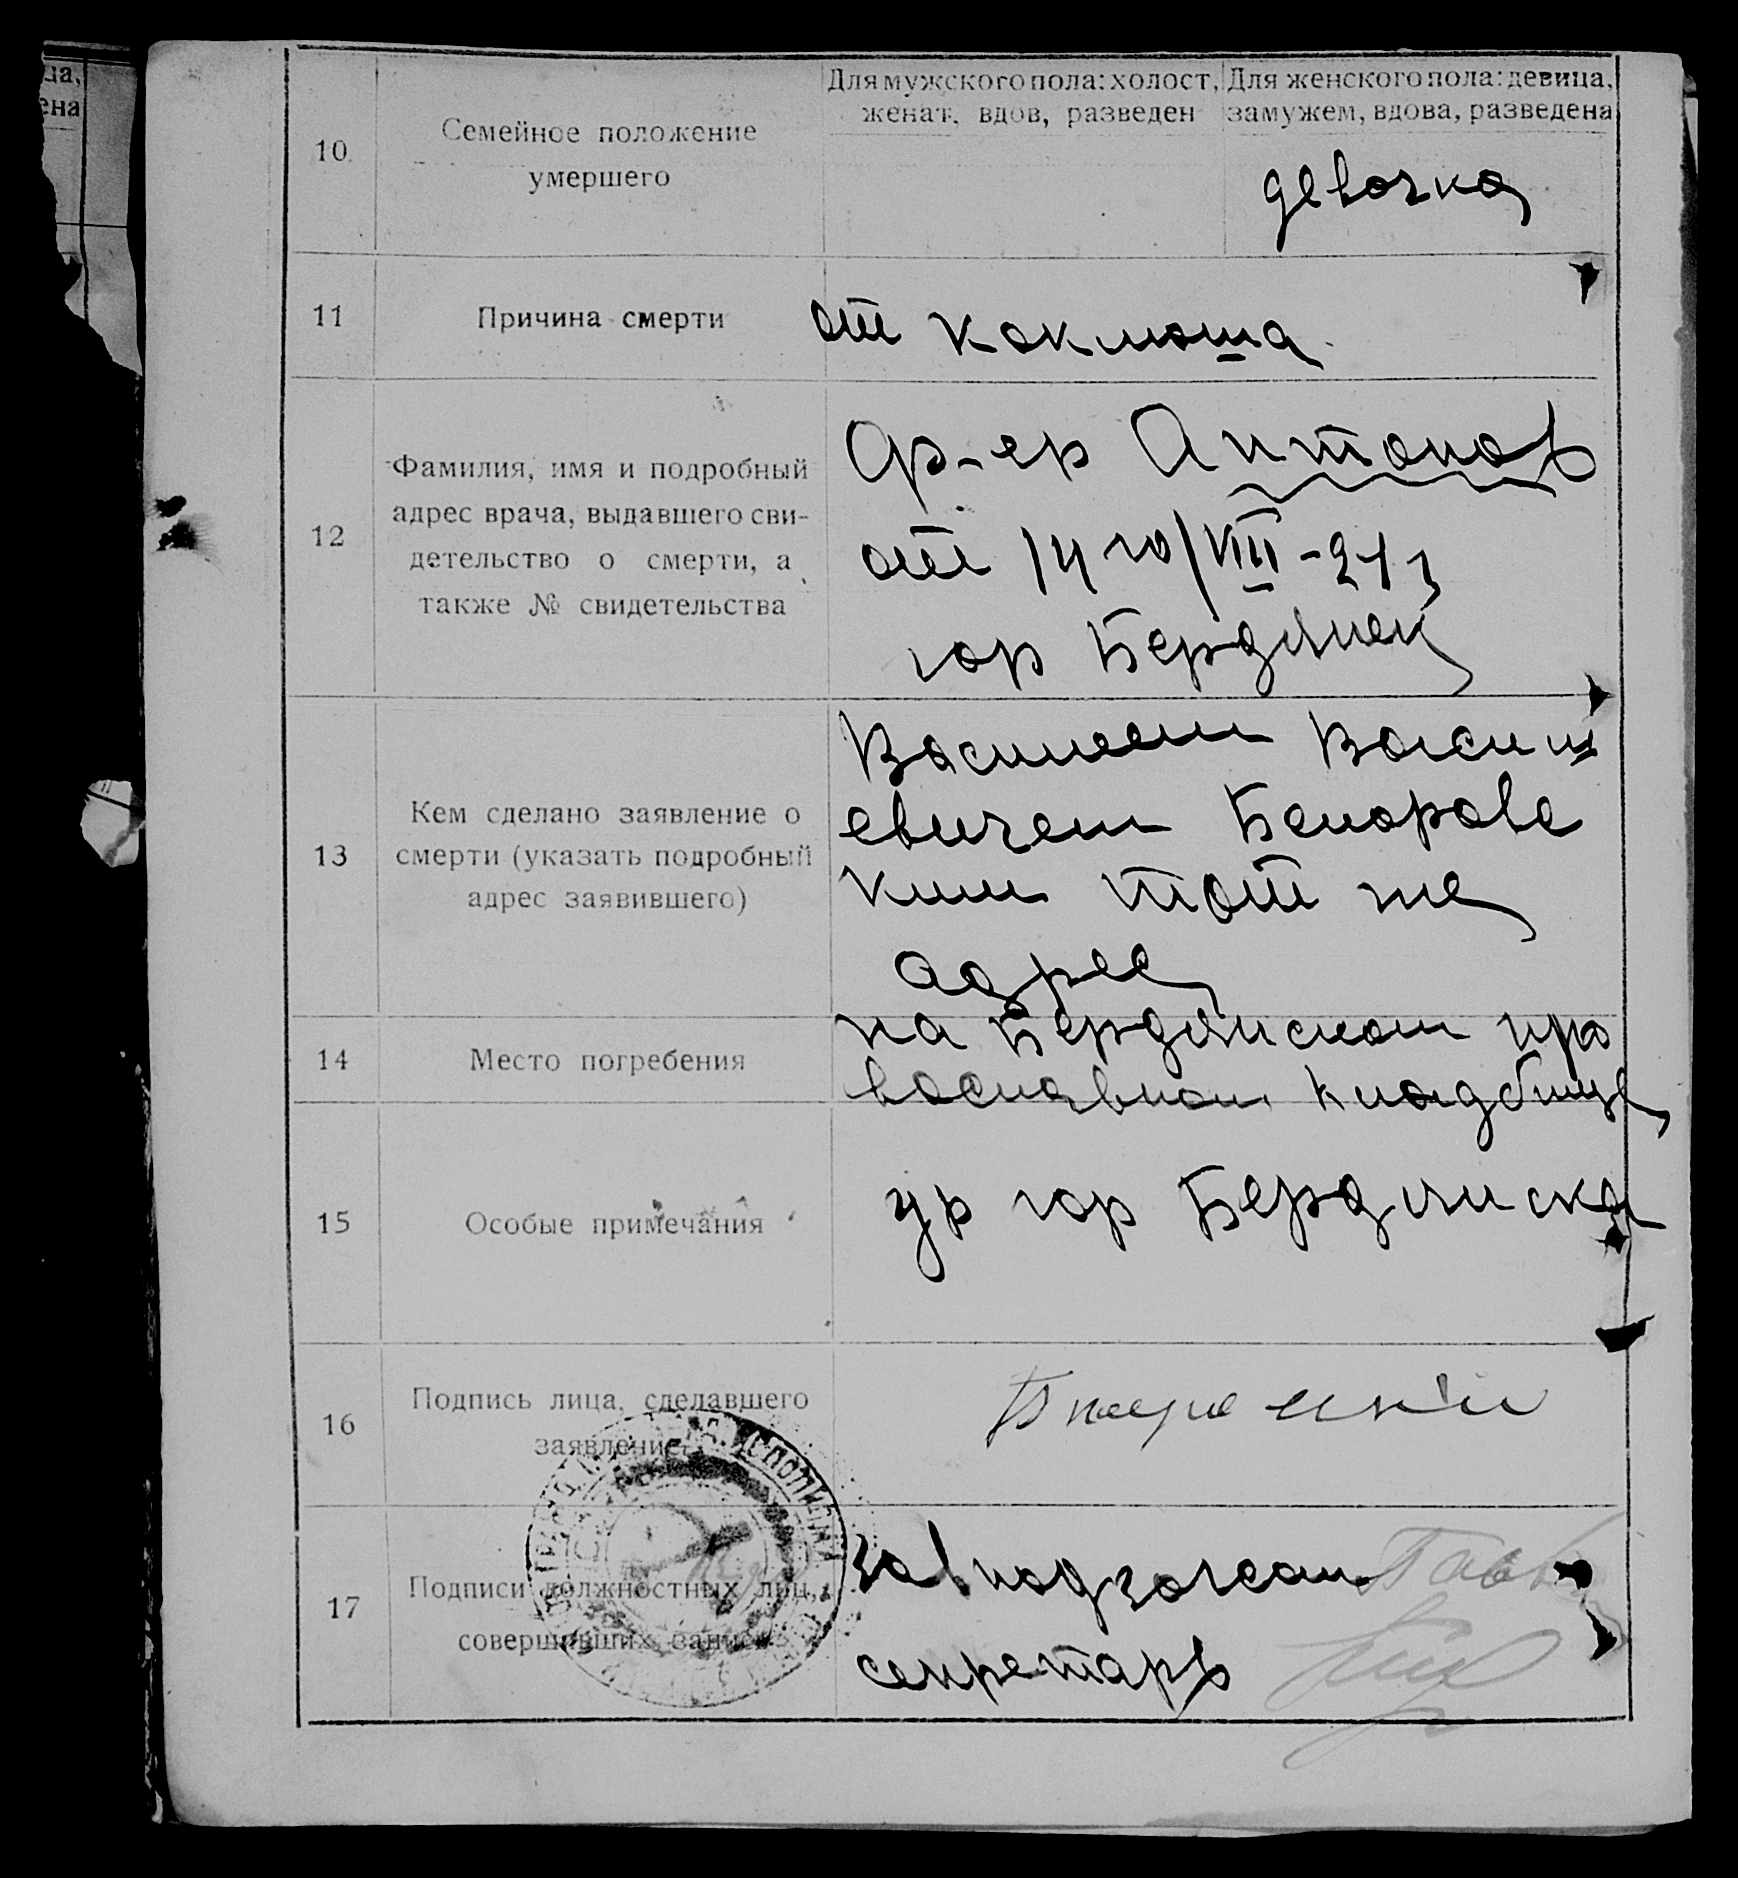 ца,
ена
10
Семейное положение
умершего
Для мужского пола: холост,
женат, вдов, разведен
Для женского пола: девица,
замужем, вдова, разведена
девочка
11
Причина смерти
от коклюша
12
Фамилия, имя и подробный
адрес врача, выдавшего сви-
детельство о смерти, а
также № свидетельства
Антонов
от 14го/VIII-21г
гор Бердянск
13
Кем сделано заявление о
смерти (указать подробный
адрес заявившего)
Василием Васили
евичем
ким тот же
адрес
14
Место погребения
на Бердянском пра
вославном кладбище
15
Особые примечания
ур гор Бердянска
16
Подпись лица, сделавшего
заявление
17
Подписи должностных лиц,
совершивших запись
Завподзагсом
секретарь